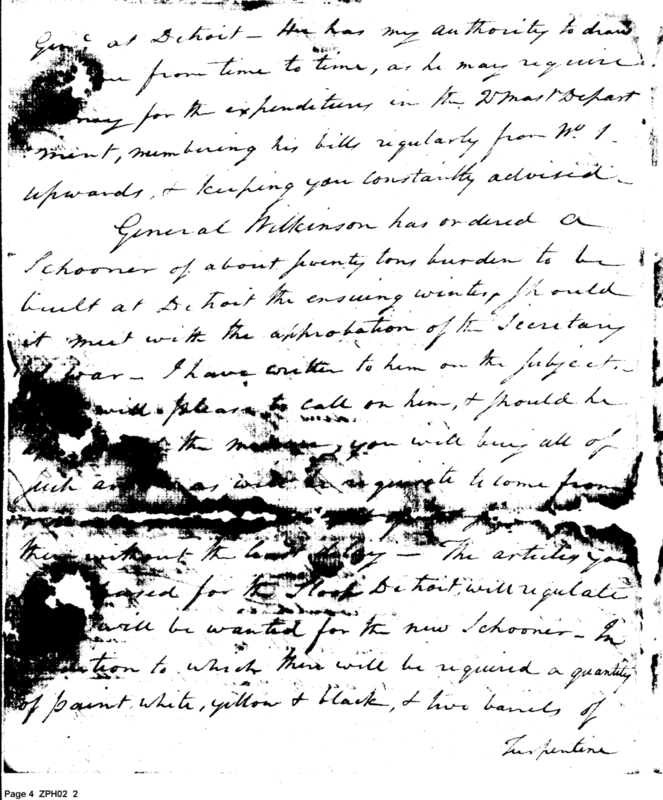 Genl at Detroit – He has my authority to draw
me from time to time, as he may require
for the expenditures in the Qr Mastr Depart
ment, numbering his bills regularly from No 1.
upwards, & keeping you constantly advised –
General Wilkinson has ordered a
Schooner of about seventy tons burden to be
built at Detroit the ensuing winter, should
it meet with the approbation of the Secretary
War – I have written to him on the subject. –
will please to call on him, & should he
the measure, you will being all of
such as will be requisite to come from
then without the least delay – The articles you
for the Sloop Detroit, will regulate
will be wanted for the new Schooner – In
to which there will be required a quantity
of paint, white, yellow & black, & two barrels of
Turpentine
Page 4 ZPH02 2